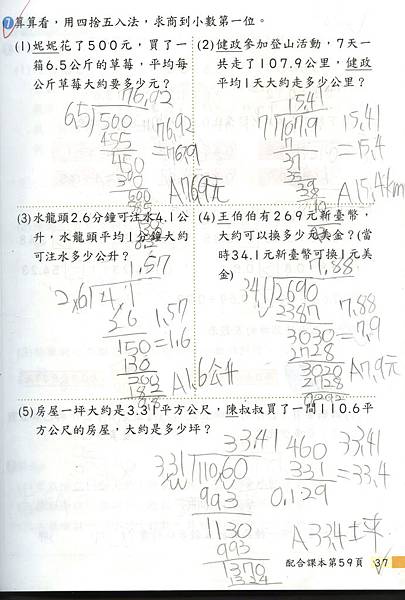 1 算算看，用四捨五入法，求商到小數第一位。
(1)妮妮花了500元，買了一
箱6.5公斤的草莓，平均每
公斤草莓大約要多少元？
76.92
6.5 500
455
450
390
76.92
=76.9
A76.9元
(2)健政參加登山活動，7天一
共走了107.9公里，健政
平均1天大約走多少公里？
15.41
7 107.9
7
37
35
15.41
=15.4
A15.4km
(3)水龍頭2.6分鐘可注水4.1公
升，水龍頭平均1分鐘大約
可注水多少公升？
1.57
2.6 4.1
26
150
130
200
182
1.57
=1.6
A1.6公升
(4)王伯伯有269元新臺幣，
大約可以換多少元美金？(當
時34.1元新臺幣可換1元美
金)
7.88
34.1 2690
2387
3030
2728
3020
2728
0292
7.88
=7.9
A7.9元
(5)房屋一坪大約是3.31平方公尺，陳叔叔買了一間110.6平
方公尺的房屋，大約是多少坪？
33.41
3.31 110.60
993
1130
993
1370
1324
460
331
0.129
33.41
=33.4
A33.4坪
配合課本第59頁 37